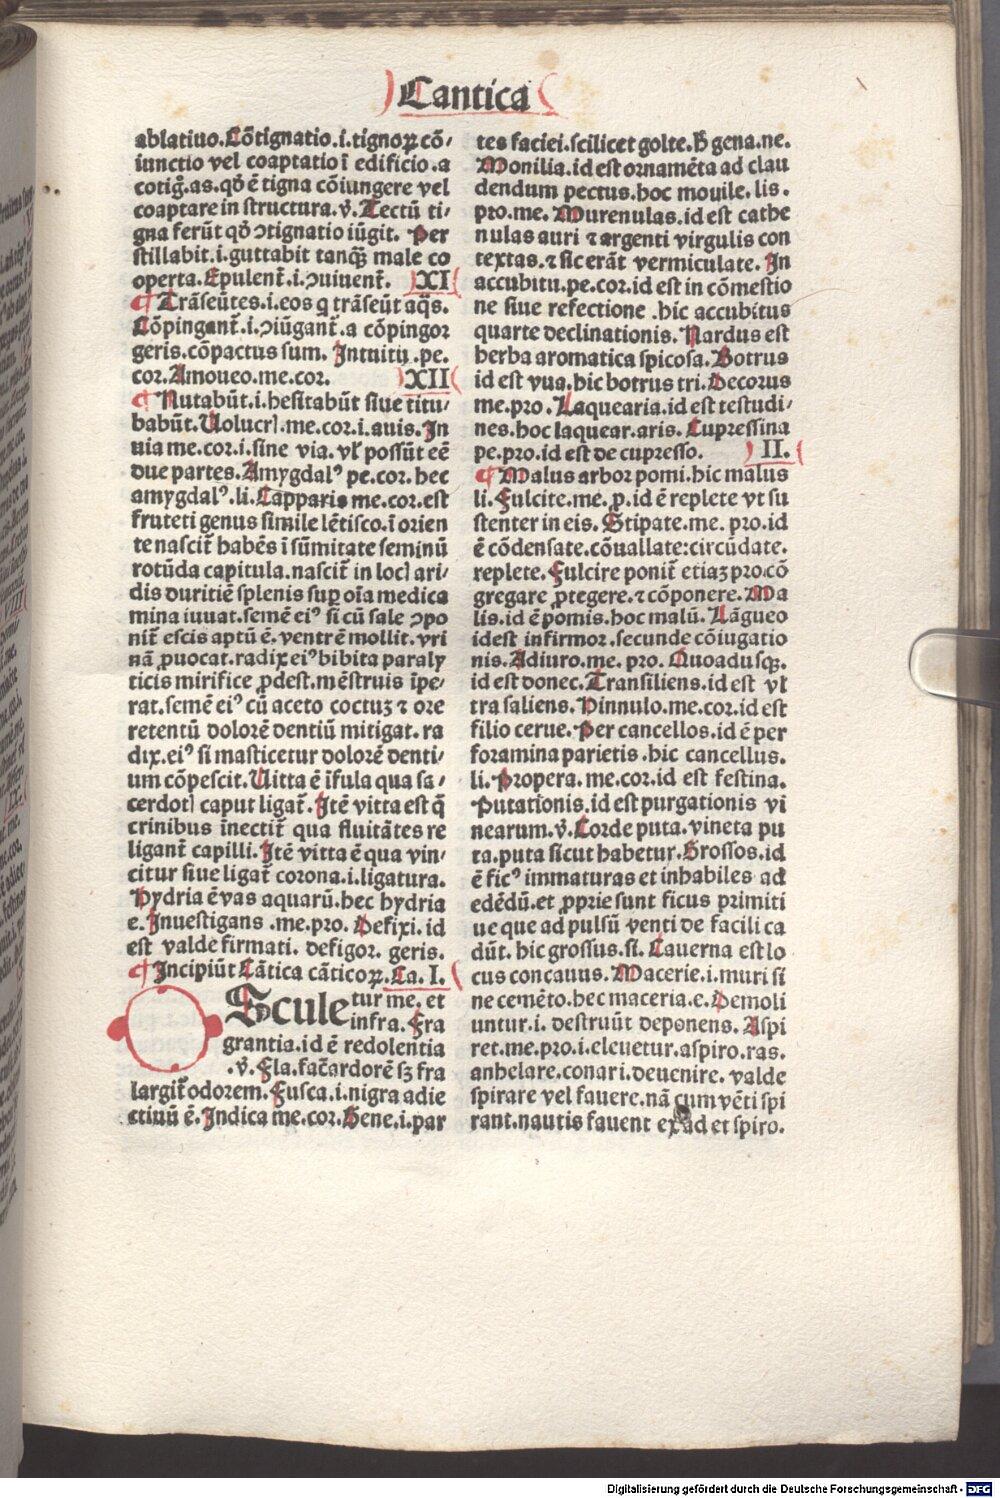 Cantica
ablatiuo.Cōtignatio.i.tignoꝝ cō/
iunctio vel coaptatio ī edificio.a
cotig̃.as.qđ ē tigna cōiungere vel
coaptare in structura.v̄.Tectū ti/
gna ferūt qđ ↄtignatio iūgit. Per
stillabit.i.guttabit tanq̃ꝫ male co
operta.Epulent̃.i.ↄuiuent̃. XI
¶ Trāseūtes.i.eos q trāseūt aq̃s.
Cōpingant̃.i.ↄiūgant̃.a cōpingor
geris.cōpactus sum. Intuitu.pe.
cor.Amoueo.me.cor. XII
¶ Nutabūt.i.hesitabūt siue titu/
babūt.Uolucrꝭ.me.cor.i.auis.In
uia me.cor.i.sine via. vl̕ possūt eē
due partes.Amygdalꝰ pe.cor.hec
amygdalꝰ.li.Capparis me.cor.est
fruteti genus simile lētisco.ī orien
te nascit̃ habēs ī sūmitate seminū
rotūda capitula.nascit̃ in locꝭ ari/
dis duritiē splenis suꝑ oīa medica
mina iuuat.semē eiꝰ si cū sale ↄpo
nit̃ escis aptū ē.ventrē mollit.vri
nā ꝓuocat.radix eiꝰ bibita paraly
ticis mirifice ꝓdest.mēstruis īpe/
rat.semē eiꝰ cū aceto coctuꝫ ⁊ ore
retentū dolorē dentiū mitigat.ra
dix.eiꝰ si masticetur dolorē denti/
um cōpescit.Uitta ē īfula qua sa/
cerdotꝭ caput ligat̃.Itē vitta est q̄
crinibus innectit̃ qua fluitātes re
ligant̃ capilli.Itē vitta ē qua vin/
citur siue ligat̃ corona.i.ligatura.
Hydria ē vas aquarū.hec hydria
e.Inuestigans .me.pro.Defixi.id
est valde firmati. defigor. geris.
¶ Incipiūt Cātica cāticoꝝ.Ca.I.
Sculetur me. et
infra.Fra
grantia.id ē redolentia
.v̄.Fla.fac̃ ardorē sꝫ fra
largit̃ odorem.Fusca.i.nigra adie
ctiuū ē.Indica me.cor.Gene.i.par
tes faciei.scilicet golte.h̄ gena.ne.
Monilia.id est ornamēta ad clau
dendum pectus.hoc monile.lis.
pro.me. Murenulas.id est cathe
nulas auri ⁊ argenti virgulis con
textas.⁊ sic erāt vermiculate. In
accubitu.pe.cor.id est in cōmestio
ne siue refectione .hic accubitus
quarte declinationis.Nardus est
herba aromatica spicosa.Botrus
id est vua.hic botrus tri.Decorus
me.pro.Laquearia.id est testudi/
nes.hoc laquear.aris.Cupressina
pe.pro.id est de cupresso. II.
¶ Malus arbor pomi.hic malus
li.Fulcite.me.ꝓ.id ē replete vt su
stenter in eis.Stipate.me. pro.id
ē cōdensate.cōuallate:circūdate.
replete.Fulcire ponit̃ etiaꝫ pro cō
gregare ꝓtegere.⁊ cōponere.Ma
lis.id ē pomis.hoc malū. Lāgueo
idest infirmor.secunde cōiugatio
nis.Adiuro.me. pro. Quoadusqꝫ.
id est donec.Transiliens.id est vl̕
tra saliens.Hinnulo.me.cor.id est
filio cerue.Per cancellos.id ē per
foramina parietis.hic cancellus.
li.Propera.me.cor.id est festina.
Putationis.id est purgationis vi
nearum.v̄.Corde puta.vineta pu
ta.puta sicut habetur.Grossos.id
ē ficꝰ immaturas et inhabiles ad
edēdū.et ꝓprie sunt ficus primiti
ue que ad pulsū venti de facili ca
dūt.hic grossus.si.Cauerna est lo
cus concauus.Macerie.i.muri si
ne cemēto.hec maceria.e.Demoli
untur.i. destruūt deponens.Aspi
ret.me.pro.i.eleuetur.aspiro.ras.
anhelare.conari.deuenire. valde
spirare vel fauere.nā cum vēti spi
rant.nautis fauent ex ad et spiro.
Digitalisierung gefördert durch die Deutsche Forschungsgemeinschaft - DFG